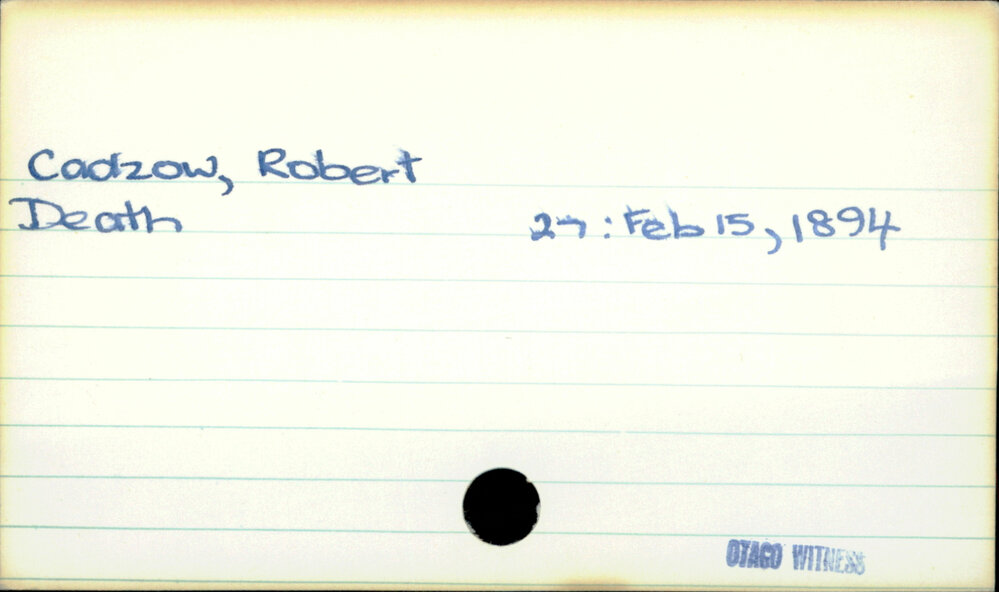 Cadzow, Robert
Death 27 : Feb 15, 1894
OTAGO WITNESS